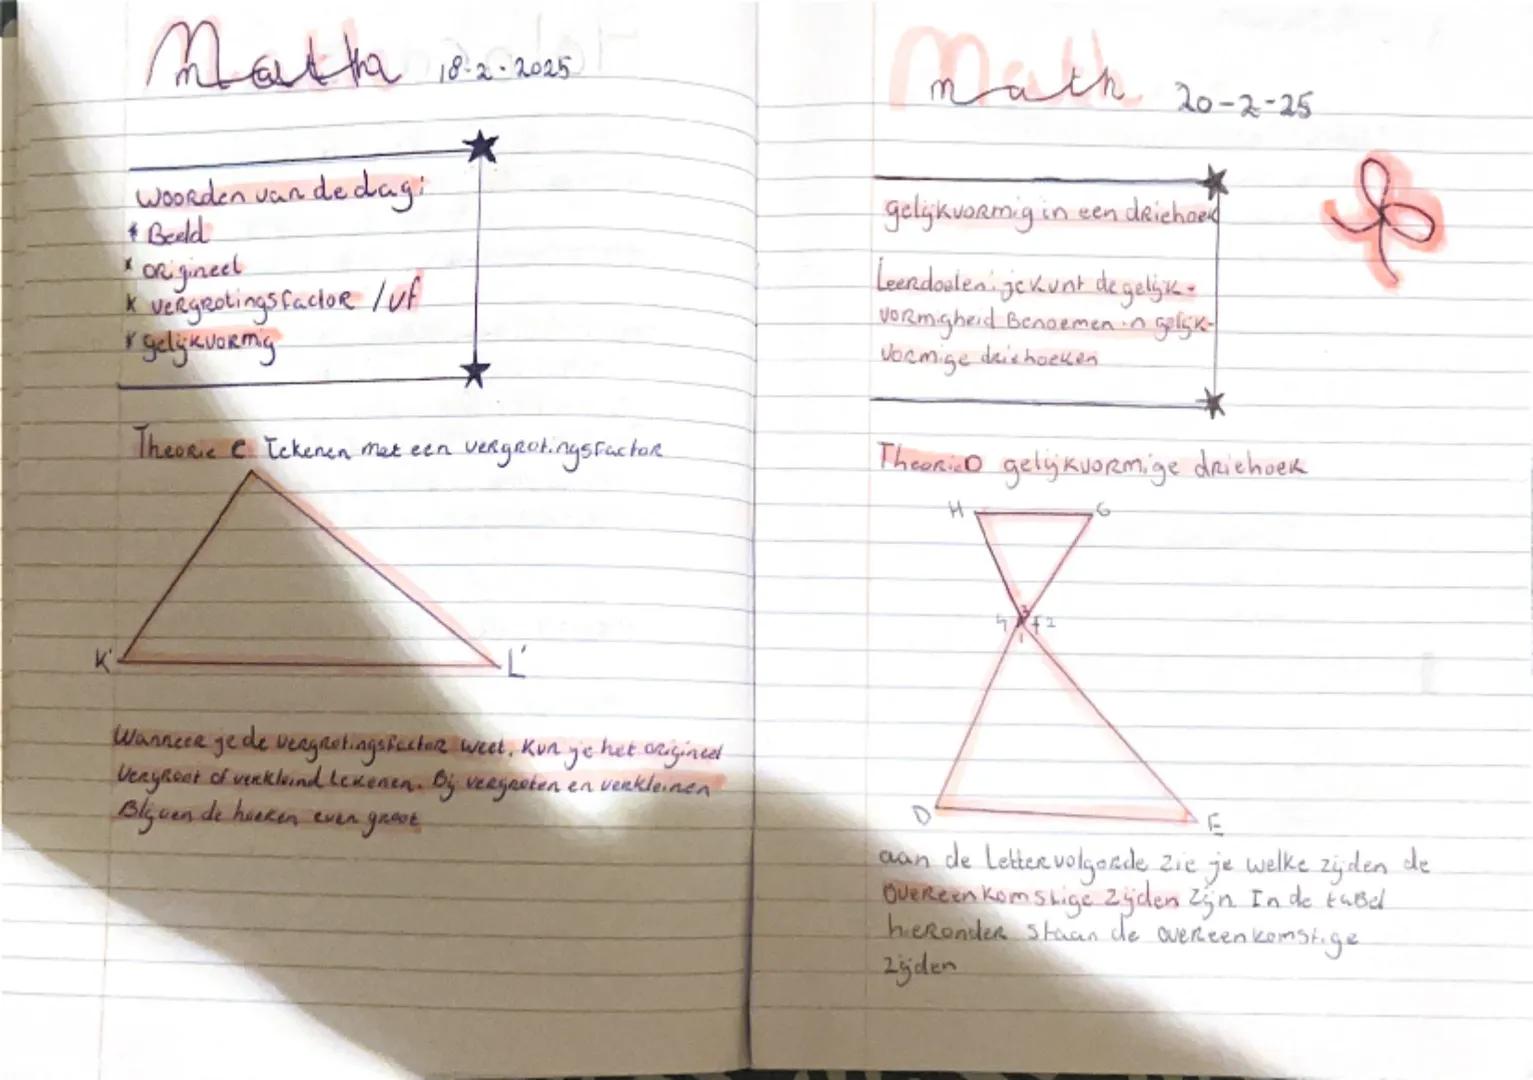 Math 18-2-2025
Woorden van de dag:
* Beeld
* origineel
* vergrotingsfactor / vf
* gelijkvormig
Theorie C Tekenen met een vergrotingsfactor
K' L'
Wanneer je de vergrotingsfactor weet, kun je het origineel
vergroot of verkleind tekenen. Bij vergroten en verkleinen
Blijven de hoeken even groot
Math 20-2-25
gelijkvormig in een driehoek
Leerdoelen: je kunt de gelijk-
vormigheid Benoemen in gelijk-
vormige driehoeken
Theorie D gelijkvormige driehoek
H G
3
4 F 2
1
D E
aan de lettervolgorde zie je welke zijden de
overeenkomstige zijden zijn. In de tabel
hieronder staan de overeenkomstige
zijden